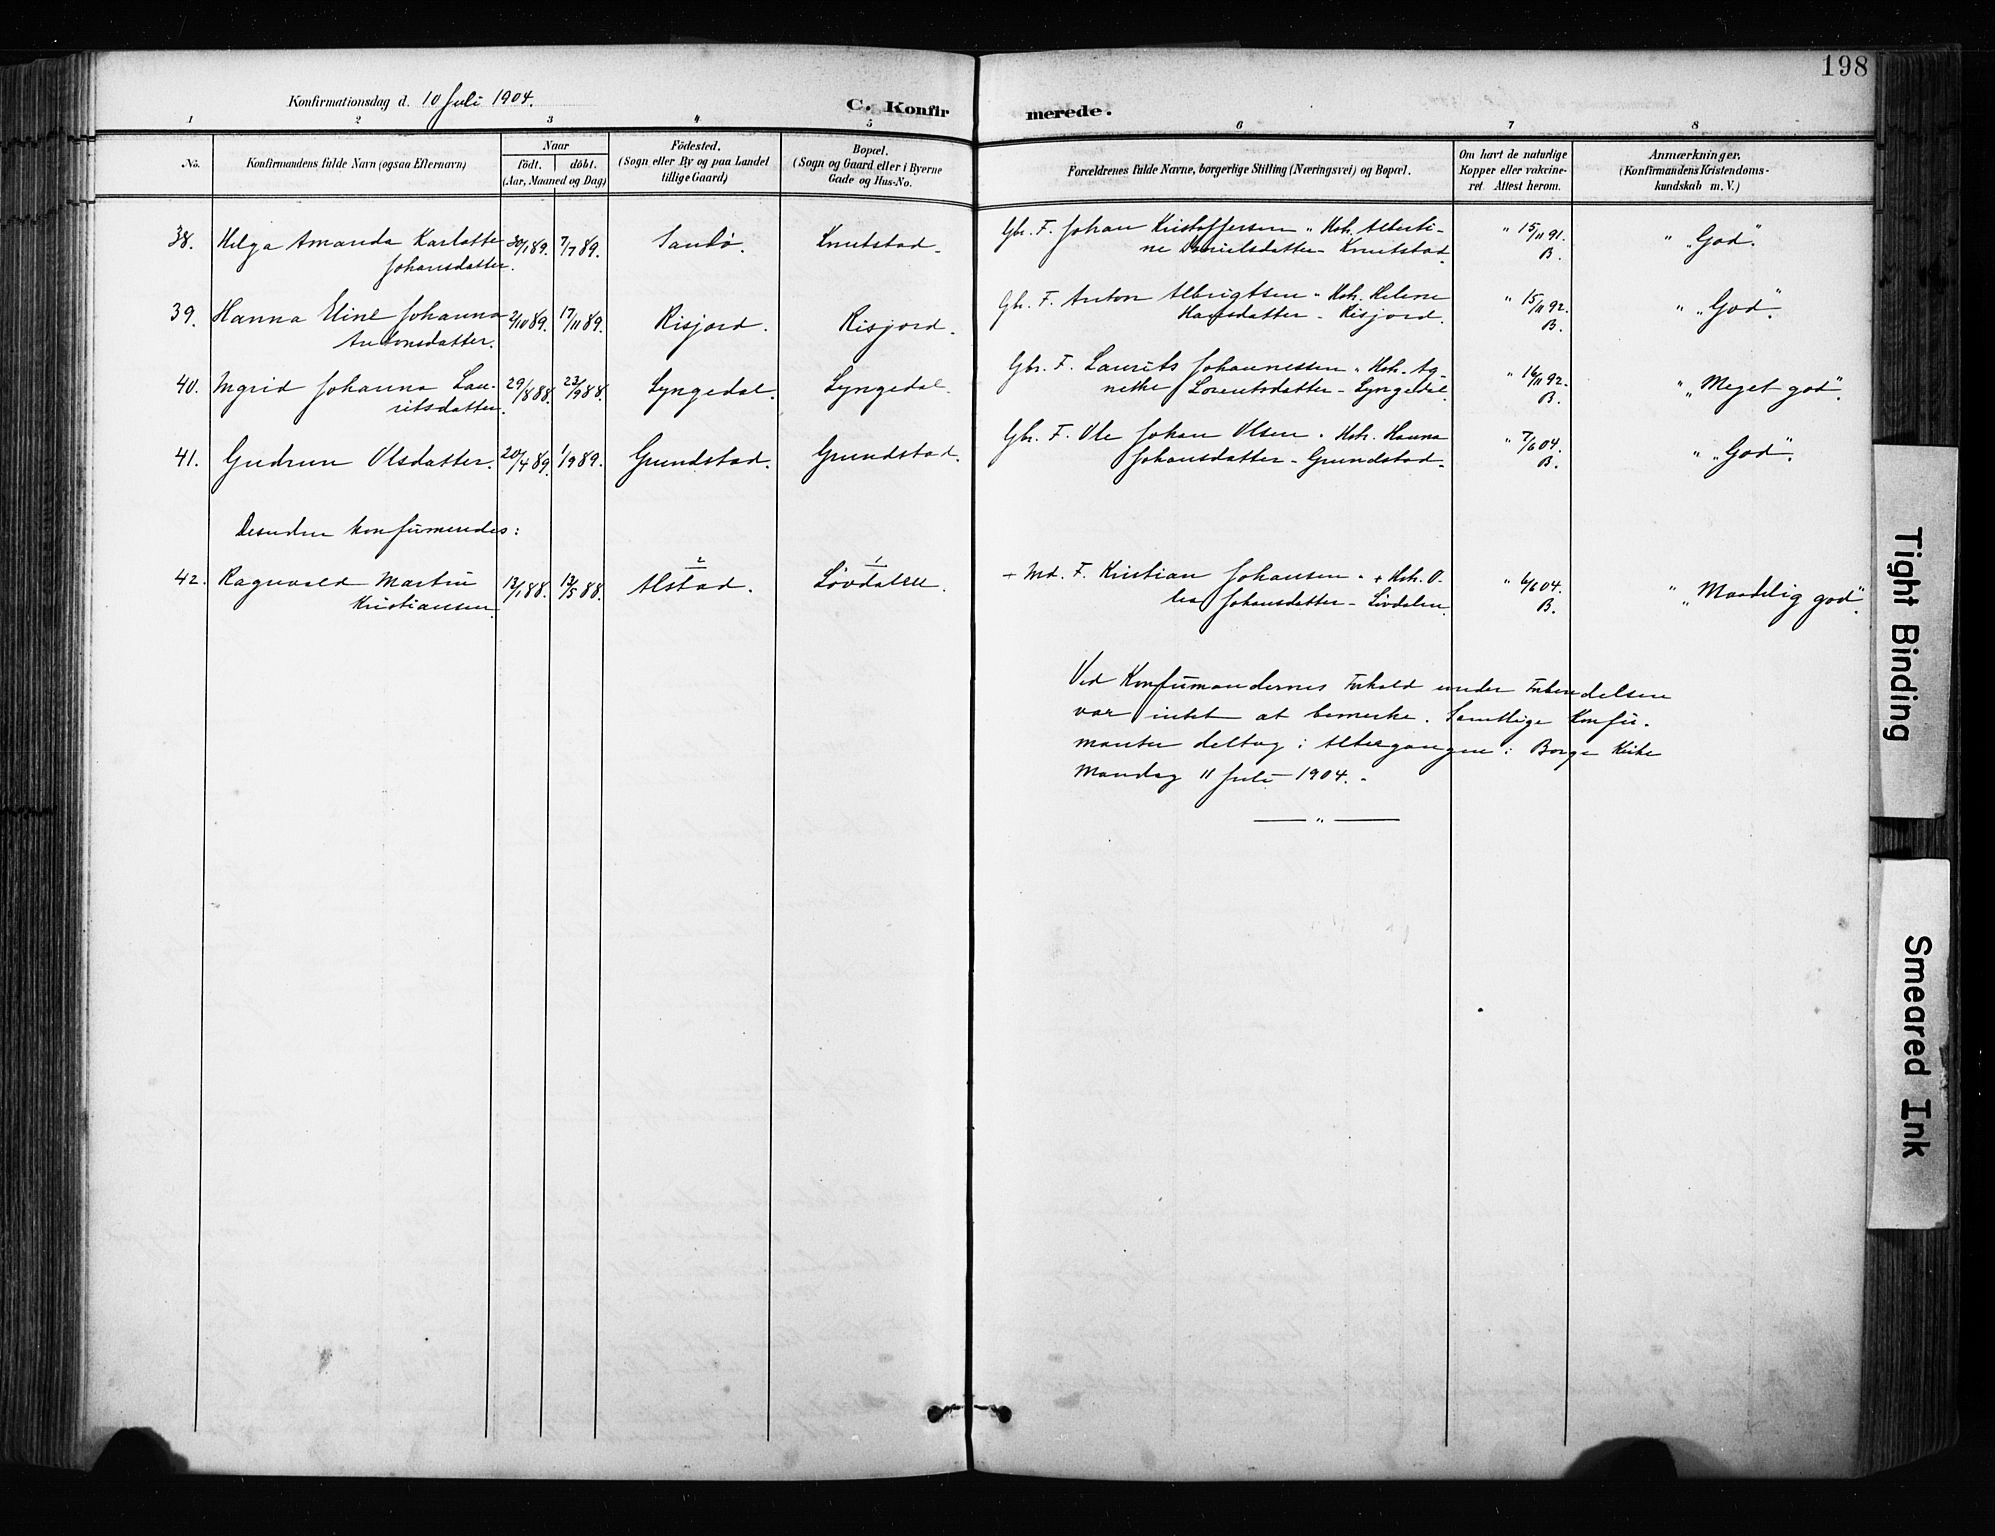 198
Konfirmationsdag d. 10 Juli 1904.
C. Konfirmerede.
1 2 3 4 5 6 7 8
No.
Konfirmandens fulde Navn (ogsaa Efternavn)
Naar
födt. döbt.
(Aar, Maaned og Dag)
Födested.
(Sogn eller By og paa Landet
tillige Gaard)
Bopæl.
(Sogn og Gaard eller i Byerne
Gade og Hus-No.
Forældrenes fulde Navne, borgerlige Stilling (Næringsvei) og Bopæl.
Om havt de naturlige
Kopper eller vakcine-
ret. Attest herom.
Anmærkninger.
(Konfirmandens Kristendoms-
kundskab m. V.)
38. Helga Amanda Karlotte 89. 7/7 89. Sandö. Knutstad. Gbr. F. Johan Kristoffersen " Hst. Alberti- " 15/11 91. " "God".
Johansdatter. ne Danielsdatter - Knutstad. B.
39. Hanna Eline Johanna 2/10 89. 17/11 89. Risjord. Risjord. Gbr. F. Anton Albrigtsen " Hst. Helene " 15/11 92. " "God".
Antonsdatter. Hansdatter - Risjord. B.
40. Ingrid Johanna Lau- 29/8 88. 23/9 88. Lyngedal. Lyngedal. Gbr. F. Laurits Johannessen " Hst. Ag- " 16/11 92. " "Meget god".
ritsdatter. nethe Lorentsdatter - Lyngedal. B.
41. Gudrun Olsdatter. 20/4 89. 1/9 89. Grundstad. Grundstad. Gbr. F. Ole Johan Olsen " Hst. Hanna " 7/6 04. " "God".
Johansdatter - Grundstad. B.
Desuden konfirmendes:
42. Ragnvald Martin 13/1 88. 13/5 88. 2 Alstad. 1 Lövdalen. + Md. F. Kristian Johansen " + Hst. O- " 6/6 04. " "Maadelig god".
Kristiansen. lea Johansdatter - Lövdalen. B.
Ved Konfirmandernes Forhold under Forberedelsen
var intet at bemerke. Samtlige Konfir-
manter deltog i Altergangen i Borge Kirke
Mandag 11 Juli 1904. -
— " —
Tight Binding
Smeared Ink